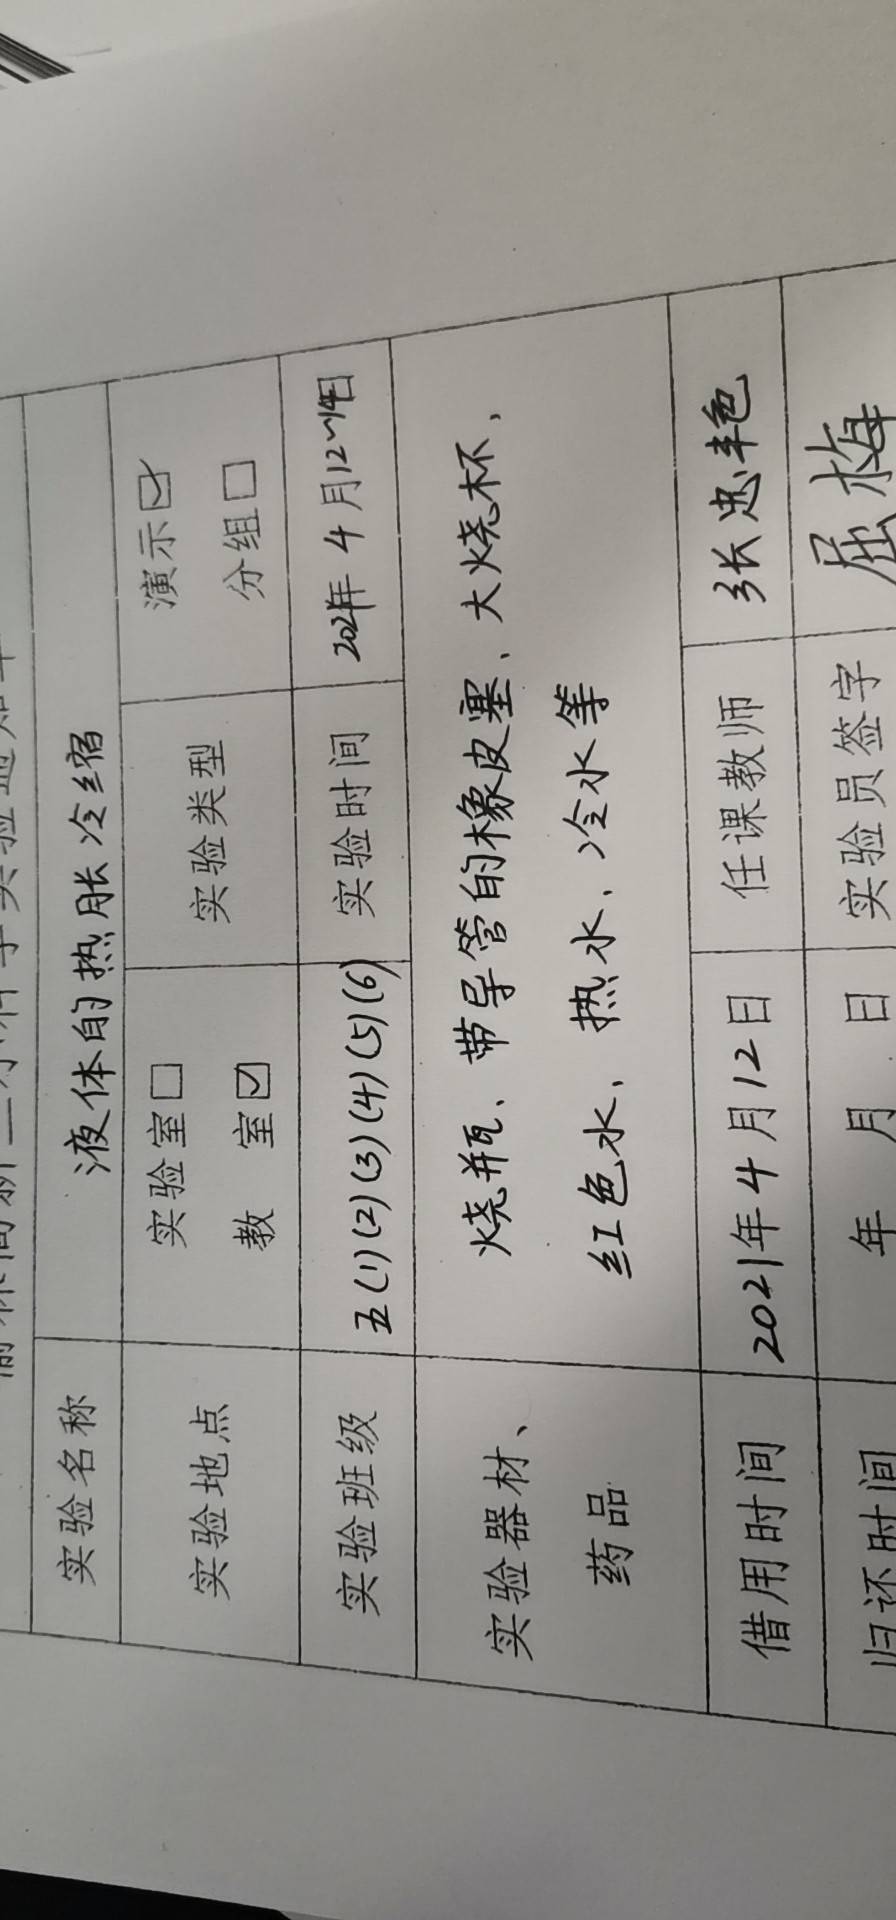 实验名称 液体的热胀冷缩
实验地点 实验室□ 教 室☑ 实验类型 演示☑ 分组□
实验班级 五(1)(2)(3)(4)(5)(6) 实验时间 2021年4月12~14日
实验器材、药品 烧瓶、带导管的橡皮塞、大烧杯、
红色水、热水、冷水等
借用时间 2021年4月12日 任课教师 张忠艳
归还时间 年 月 日 实验员签字 屈梅